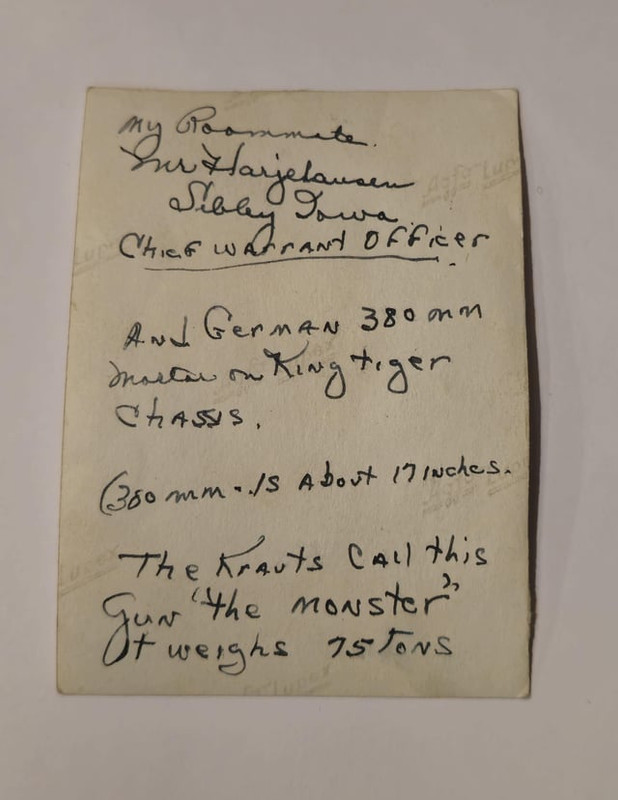 my Roommate.
Mr Harjehausen
Sibley Iowa.
Chief warrant officer
And German 380 mm
mortar on King tiger
Chassis.
(380 mm - is about 17 inches.
The Krauts call this
Gun "the monster"
It weighs 75 Tons